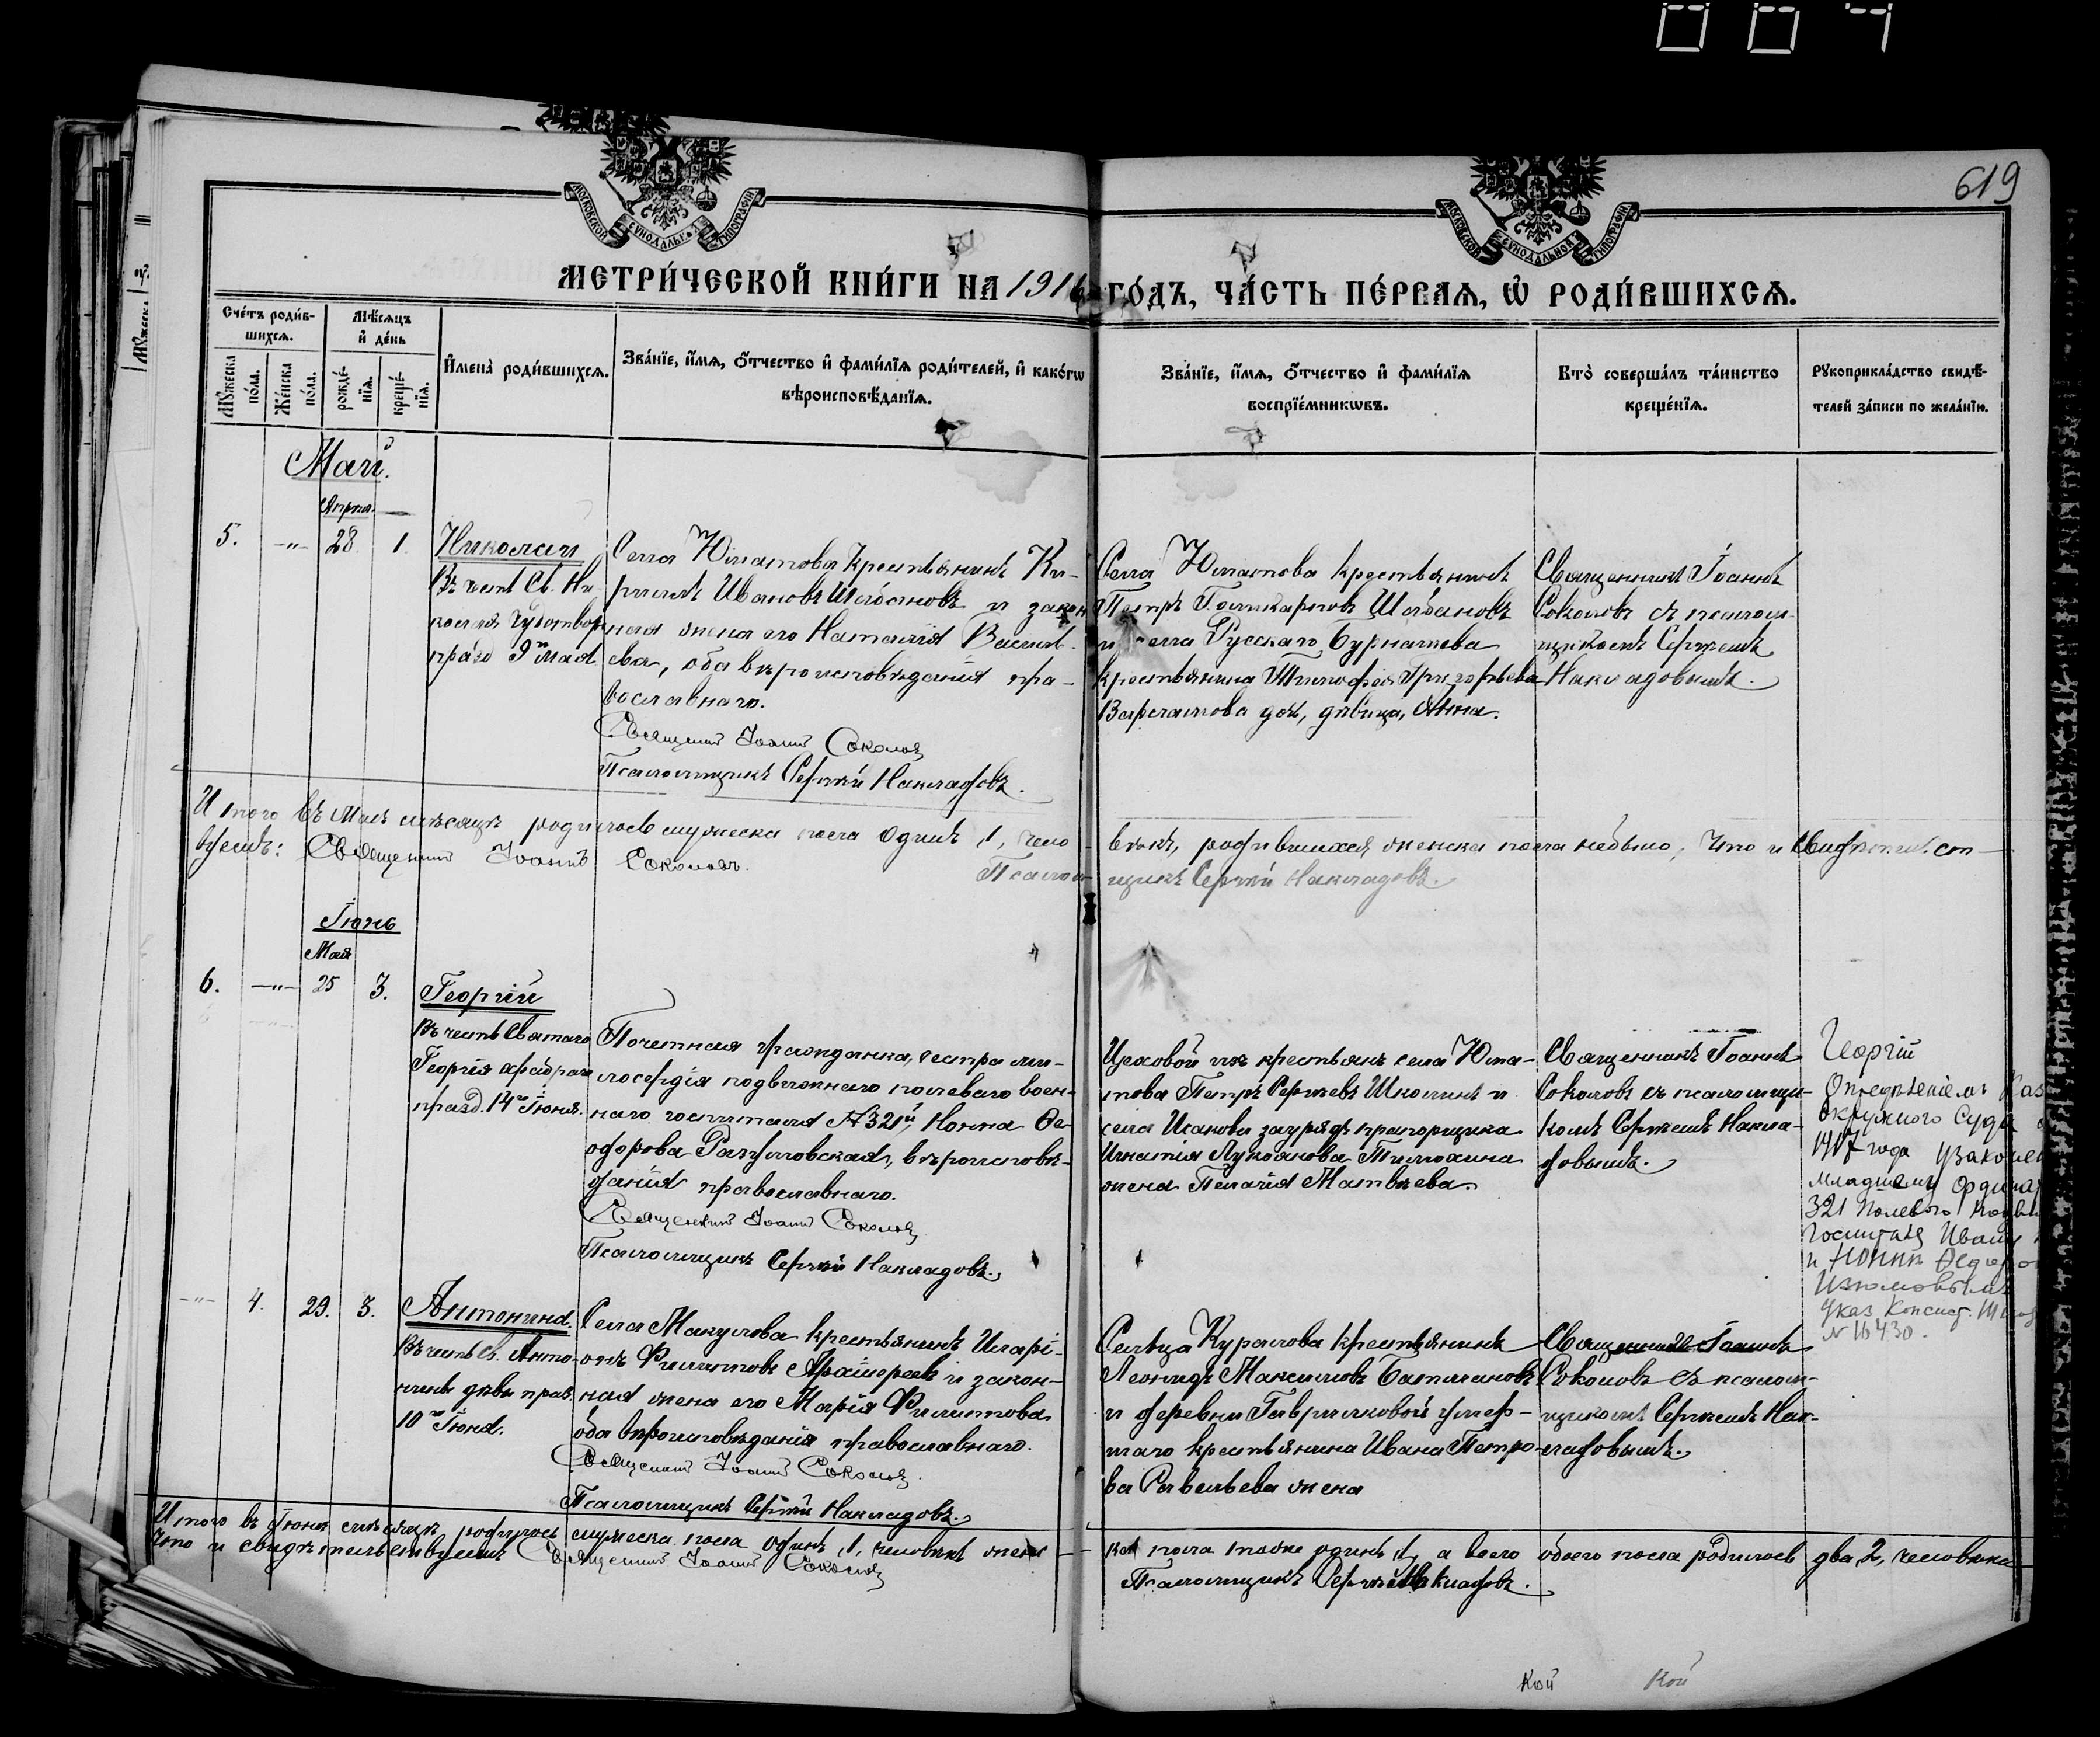 619
МОСКОВСКОЙ СУНОДАЛЬНОЙ ТИПОГРАФІИ
МОСКОВСКОЙ СУНОДАЛЬНОЙ ТИПОГРАФІИ
МЕТРИ́ЧЕСКОЙ КНИ́ГИ НА 1916 ГО́ДЪ, ЧА́СТЬ ПЕ́РВАѦ, Ѡ РОДИ́ВШИХСѦ.
Сче́тъ роди́в-
шихсѧ.
Мꙋ́жеска по́ла.
Же́нска по́ла.
Мѣ́сѧцъ
и де́нь
рожде́-
нїѧ.
креще́-
нїѧ.
И҆мена̀ роди́вшихсѧ.
Зва́нїе, и́мѧ, ѻ҆́тчество и фами́лїѧ роди́телей, и како́гѡ
вѣроисповѣ́данїѧ.
Зва́нїе, и́мѧ, ѻ҆́тчество и фами́лїѧ
воспрїе́мникѡвъ.
Кто̀ соверша́лъ та́инство
креще́нїѧ.
Рꙋкоприкла́дство свидѣ́-
телей за́писи по жела́нїю.
Май.
Апрѣл.
5. -"- 28 1.
Николай
Въ честь Св. Ни-
колая Чудотвор
празд 9го мая
Села Юматова крестьянинъ Ки-
риллъ Ивановъ Шабановъ и закон
ная жена его Наталія Василь-
ева, оба вѣроисповѣданія пра-
вославнаго.
Священникъ Іоаннъ Соколовъ
Псаломщикъ Сергѣй Накладовъ.
Села Юматова крестьянинъ
Петръ Поликарповъ Шабановъ
и села Русскаго Бурнашева
крестьянина Тимофея Григорьева
Варфаламова дочь, дѣвица, Анна.
Священникъ Іоаннъ
Соколовъ съ псалом-
щикомъ Сергѣемъ
Накладовымъ.
Итого въ Маѣ мѣсяцѣ родилось мужеска пола одинъ, 1, чело-
вѣкъ, родившихся женска пола небыло, что и свидѣтельст-
вуемъ: Священникъ Іоаннъ Соколовъ.
Псалом-щикъ Сергѣй Накладовъ.
Іюнь
Мая
6. -"- 25 3.
Георгій
Въ честь Святаго
Георгія
празд. 14го Іюня.
Почетная гражданка, сестра ми-
лосердія подвижнаго полеваго воен-
наго госпиталя № 321й, Нонна Ѳе-
одорова Разумовская, вѣроисповѣ-
данія православнаго.
Священникъ Іоаннъ Соколовъ
Псаломщикъ Сергѣй Накладовъ.
изъ крестьянъ села Юма-
това Петръ Сергѣевъ Школинъ и
села Исакова заурядъ прапорщика
Игнатія Лукоянова Тимохина
жена Пелагія Матвѣева.
Священникъ Іоаннъ
Соколовъ съ псаломщи-
комъ Сергѣемъ Накла-
довымъ.
Георгій
Опредѣленіемъ Каз
Окружного Суда
1917 года узаконен
младшему ордина
321 полевого подви
госпиталя Ивану
и Ноннѣ Ѳедоро
Изюмовымъ
Указ Консист.
№ 16430.
-"- 4. 29. 5.
Антонина.
Въ честь Св. Анто-
нины дѣвы праз.
10го Іюня.
Села Макулова крестьянинъ Иларі-
онъ Филипповъ и закон-
ная жена его Марія Филиппова
оба вѣроисповѣданія православнаго.
Священникъ Іоаннъ Соколовъ.
Псаломщикъ Сергѣй Накладовъ.
Сельца Куралова крестьянинъ
Леонидъ Максимовъ Батмановъ
и деревни Гавриловкой умер-
шаго крестьянина Ивана Петро-
ва Савельева жена
Священникъ Іоаннъ
Соколовъ съ псалом-
щикомъ Сергѣемъ Нак-
ладовымъ.
Итого въ Іюнѣ мѣсяцѣ родилось мужеска пола одинъ, 1, человѣкъ женс-
кой пола тоже одинъ, 1, а всего обоего пола родилось два, 2, человѣка
что и свидѣтельствуемъ Священникъ Іоаннъ Соколовъ
Псаломщикъ Сергѣй Накладовъ.
кой кой